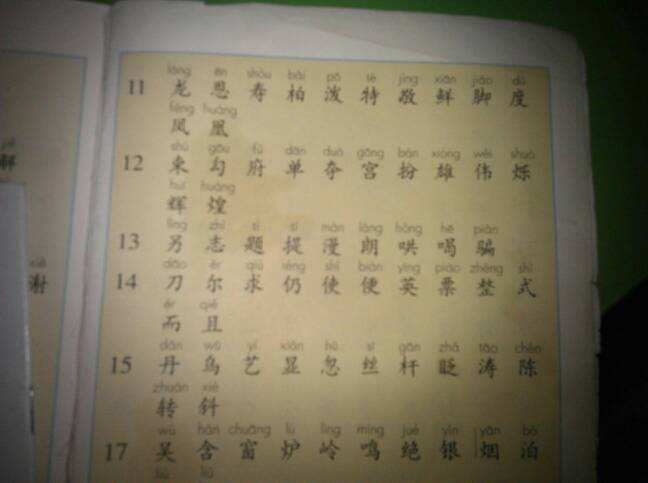 lóng ēn shòu bǎi pō tè jìng xiān jiǎo dù
11 龙 恩 寿 柏 泼 特 敬 鲜 脚 度
fèng huáng
凤 凰
shù gōu fǔ dān duó gōng bàn xióng wěi shuò
12 束 勾 府 单 夺 宫 扮 雄 伟 烁
huī huáng
辉 煌
lìng zhì tí tí màn lǎng hǒng hē piàn
13 另 志 题 提 漫 朗 哄 喝 骗
dāo ěr qiú réng shǐ biàn yīng piào zhěng shì
14 刀 尔 求 仍 使 便 英 票 整 式
ér qiě
而 且
dān wū yì xiǎn hū sī gān zhǎ tāo chén
15 丹 乌 艺 显 忽 丝 杆 眨 涛 陈
zhuàn xié
转 斜
wú hán chuāng lú lǐng míng jué yín yān bó
17 吴 含 窗 炉 岭 鸣 绝 银 烟 泊
liú liǔ
解
xiè
谢